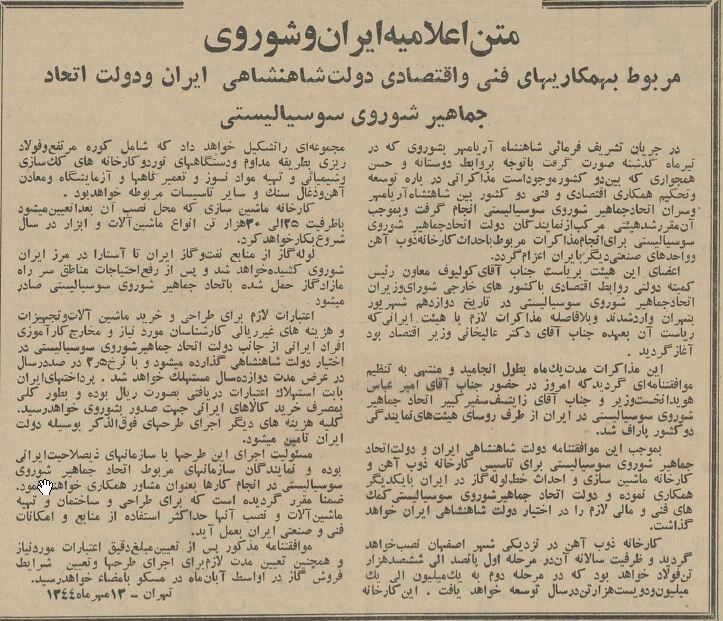 متن اعلامیه ایران و شوروی
مربوط بهمکاریهای فنی و اقتصادی دولت شاهنشاهی ایران و دولت اتحاد
جماهیر شوروی سوسیالیستی
در جریان تشریف فرمائی شاهنشاه آریامهر بشوروی که در
تیرماه گذشته صورت گرفت باتوجه بروابط دوستانه و حسن
همجواری که بین دو کشور موجود است مذاکراتی در باره توسعه
وتحکیم همکاری اقتصادی و فنی دو کشور بین شاهنشاه آریامهر
وسران اتحاد جماهیر شوروی سوسیالیستی انجام گرفت وبموجب
آن مقرر شد هیئتی مرکب از نمایندگان دولت اتحاد جماهیر شوروی
سوسیالیستی برای انجام مذاکرات مربوط باحداث کارخانه ذوب آهن
وواحدهای صنعتی دیگر بایران اعزام گردد.
اعضای این هیئت بریاست جناب آقای کولیوف معاون رئیس
کمیته دولتی روابط اقتصادی باکشور های خارجی شورای وزیران
اتحاد جماهیر شوروی سوسیالیستی در تاریخ دوازدهم شهریور
بتهران وارد شدند وبلافاصله مذاکرات لازم با هیئت ایرانی که
ریاست آن بعهده جناب آقای دکتر عالیخانی وزیر اقتصاد بود
آغاز گردید .
این مذاکرات مدت یك ماه بطول انجامید و منتهی به تنظیم
موافقتنامه‌ای گردید که امروز در حضور جناب آقای امیر عباس
هویدا نخست وزیر و جناب آقای زایتسف سفیر کبیر اتحاد جماهیر
شوروی سوسیالیستی در ایران از طرف روسای هیئت‌های نمایندگی
دو کشور پاراف شد.
بموجب این موافقتنامه دولت شاهنشاهی ایران و دولت اتحاد
جماهیر شوروی سوسیالیستی برای تاسیس کارخانه ذوب آهن و
کارخانه ماشین سازی و احداث خط لوله گاز در ایران بایکدیگر
همکاری نموده و دولت اتحاد جماهیر شوروی سوسیالیستی کمك
های فنی و مالی لازم را در اختیار دولت شاهنشاهی ایران خواهد
گذاشت.
کارخانه ذوب آهن در نزدیکی شهر اصفهان نصب خواهد
گردید و ظرفیت سالانه آن در مرحله اول پانصد الی ششصد هزار
تن فولاد خواهد بود که در مرحله دوم به یك میلیون الی یك
میلیون و دویست هزار تن در سال توسعه خواهد یافت . این کارخانه
مجموعه‌ای را تشکیل خواهد داد که شامل کوره مرتفع و فولاد
ریزی بطریقه مداوم و دستگاههای نورد و کارخانه های کك سازی
وشیمیائی و تهیه مواد نسوز و تعمیر گاهها و آزمایشگاه و معادن
آهن و ذغال سنك و سایر تاسیسات مربوطه خواهد بود .
کارخانه ماشین سازی که محل نصب آن بعدا تعیین میشود
باظرفیت ۲۵ الی ۳۰ هزار تن انواع ماشین آلات و ابزار در سال
شروع بکار خواهد کرد.
لوله گاز از منابع نفت و گاز ایران تا آستارا در مرز ایران
شوروی کشیده خواهد شد و پس از رفع احتیاجات مناطق سر راه
مازاد گاز حمل شده باتحاد جماهیر شوروی سوسیالیستی صادر
میشود
اعتبارات لازم برای طراحی و خرید ماشین آلات و تجهیزات
و هزینه های غیر ریالی کارشناسان مورد نیاز و مخارج کارآموزی
افراد ایرانی از جانب دولت اتحاد جماهیر شوروی سوسیالیستی در
اختیار دولت شاهنشاهی گذارده میشود و با نرخ ۲٫۵ در صد در سال
در عرض مدت دوازده سال مستهلك خواهد شد . پرداختهای ایران
بابت استهلاك اعتبارات دریافتی بصورت ریال بوده و بطور کلی
بمصرف خرید کالاهای ایرانی جهت صدور بشوروی خواهد رسید.
کلیه هزینه های دیگر اجرای طرحهای فوق الذکر بوسیله دولت
ایران تامین میشود.
مسئولیت اجرای این طرحها با سازمانهای ذیصلاحیت ایرانی
بوده و نمایندگان سازمانهای مربوط اتحاد جماهیر شوروی
سوسیالیستی در انجام کارها بعنوان مشاور همکاری خواهند نمود.
ضمنا مقرر گردیده است که برای طراحی و ساختمان و تهیه
ماشین آلات و نصب آنها حداکثر استفاده از منابع و امکانات
فنی و صنعتی ایران بعمل آید.
موافقتنامه مذکور پس از تعیین مبلغ دقیق اعتبارات مورد نیاز
و همچنین تعیین مدت لازم برای اجرای طرحها و تعیین شرایط
فروش گاز در اواسط آبان ماه در مسکو بامضاء خواهد رسید.
تهران – ۱۳ مهر ماه ۱۳۴۴